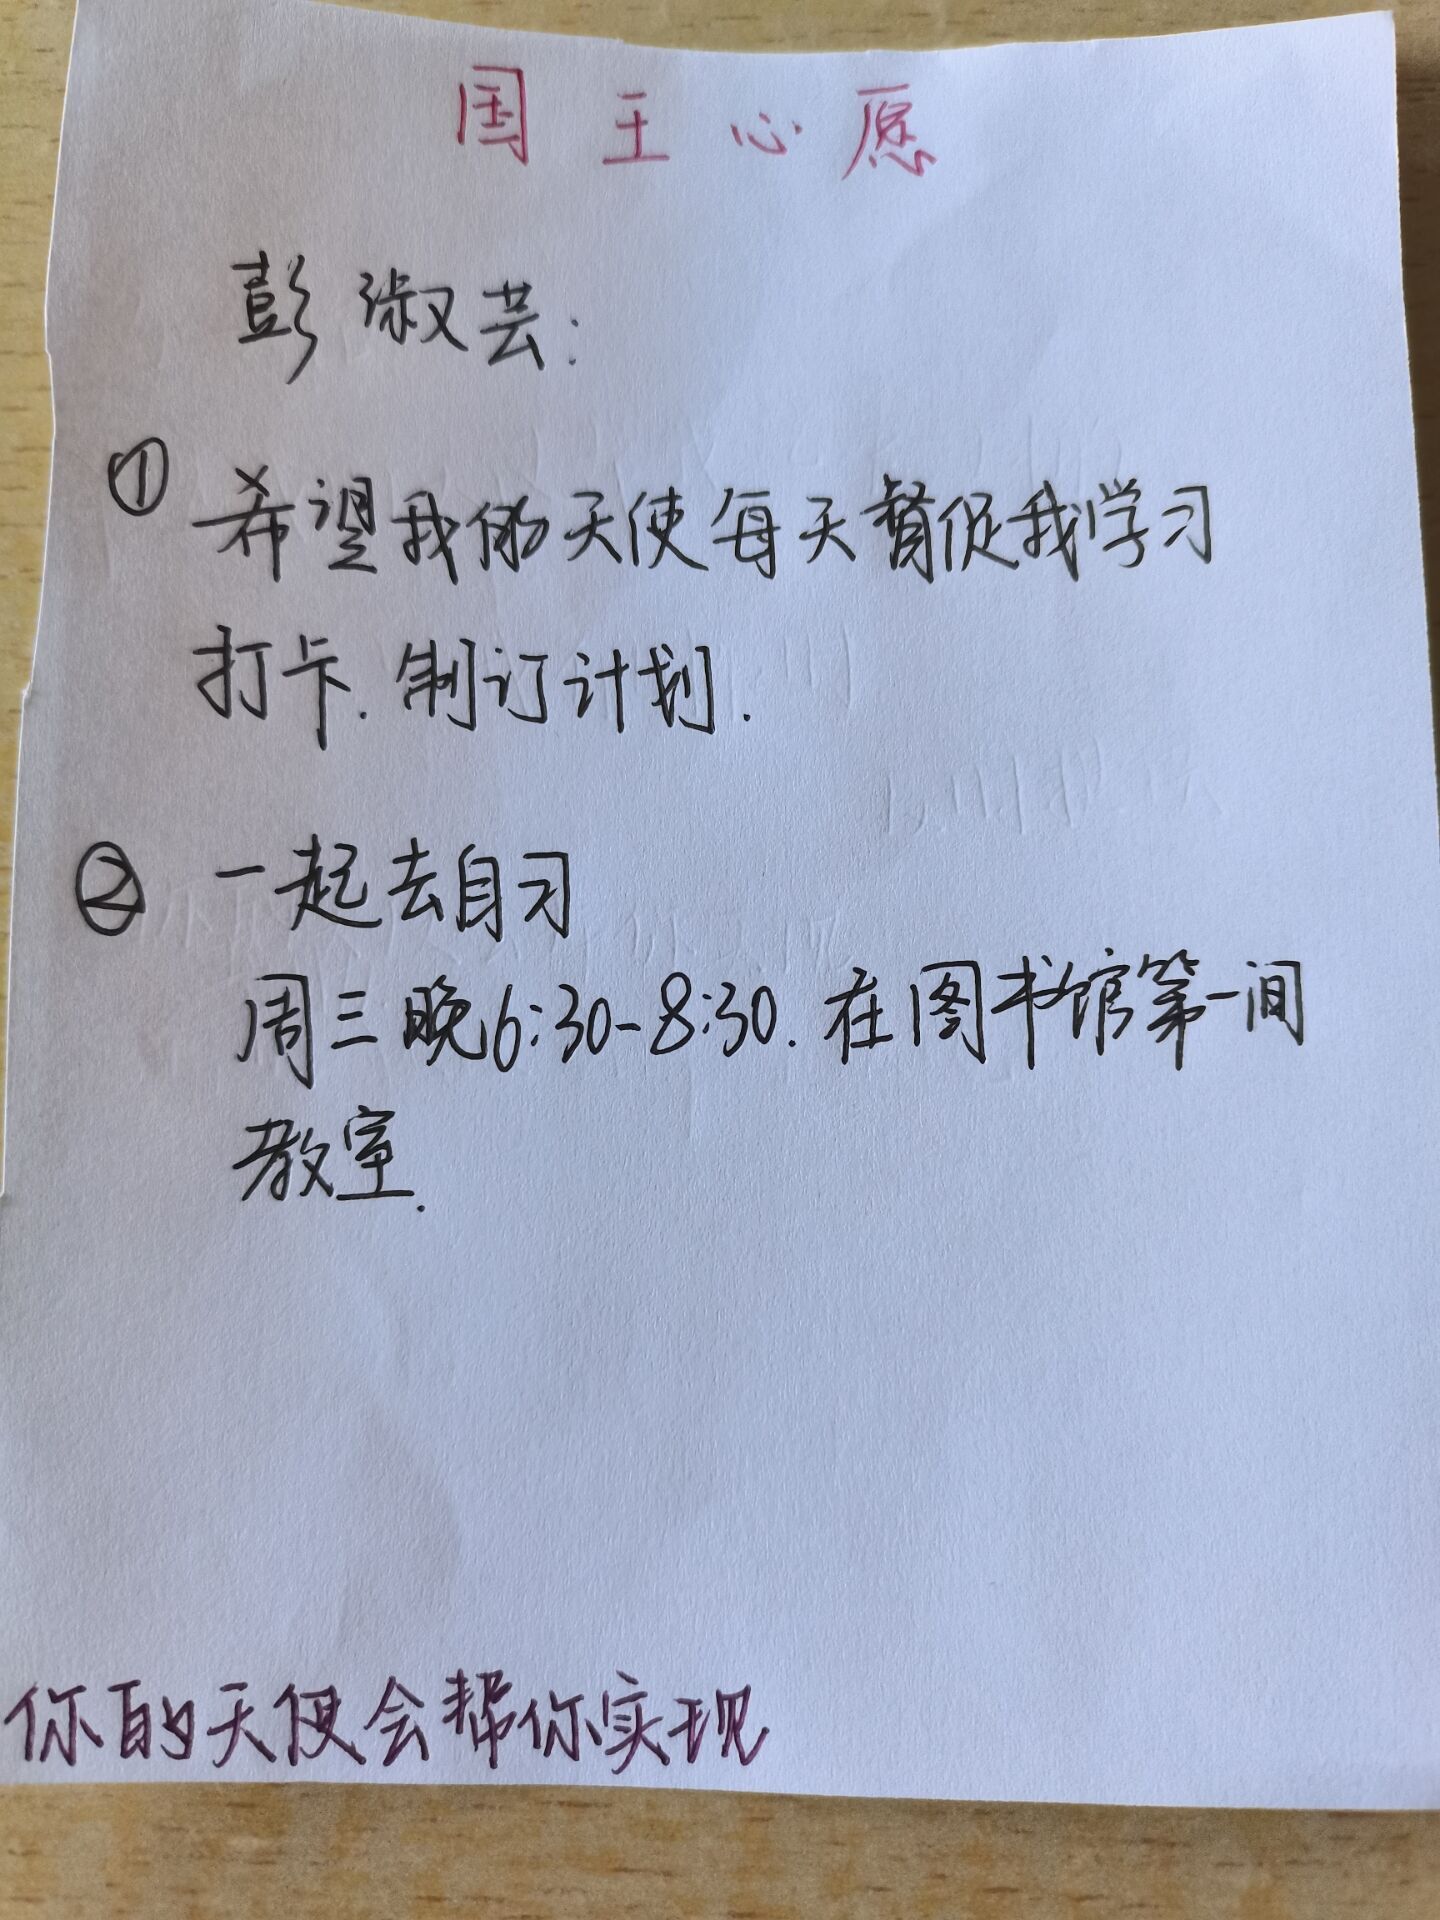 国王心愿
彭淑芸:
① 希望我的天使每天督促我学习
打卡.制订计划.
② 一起去自习
周三晚6:30-8:30.在图书馆第一间
教室.
你的天使会帮你实现